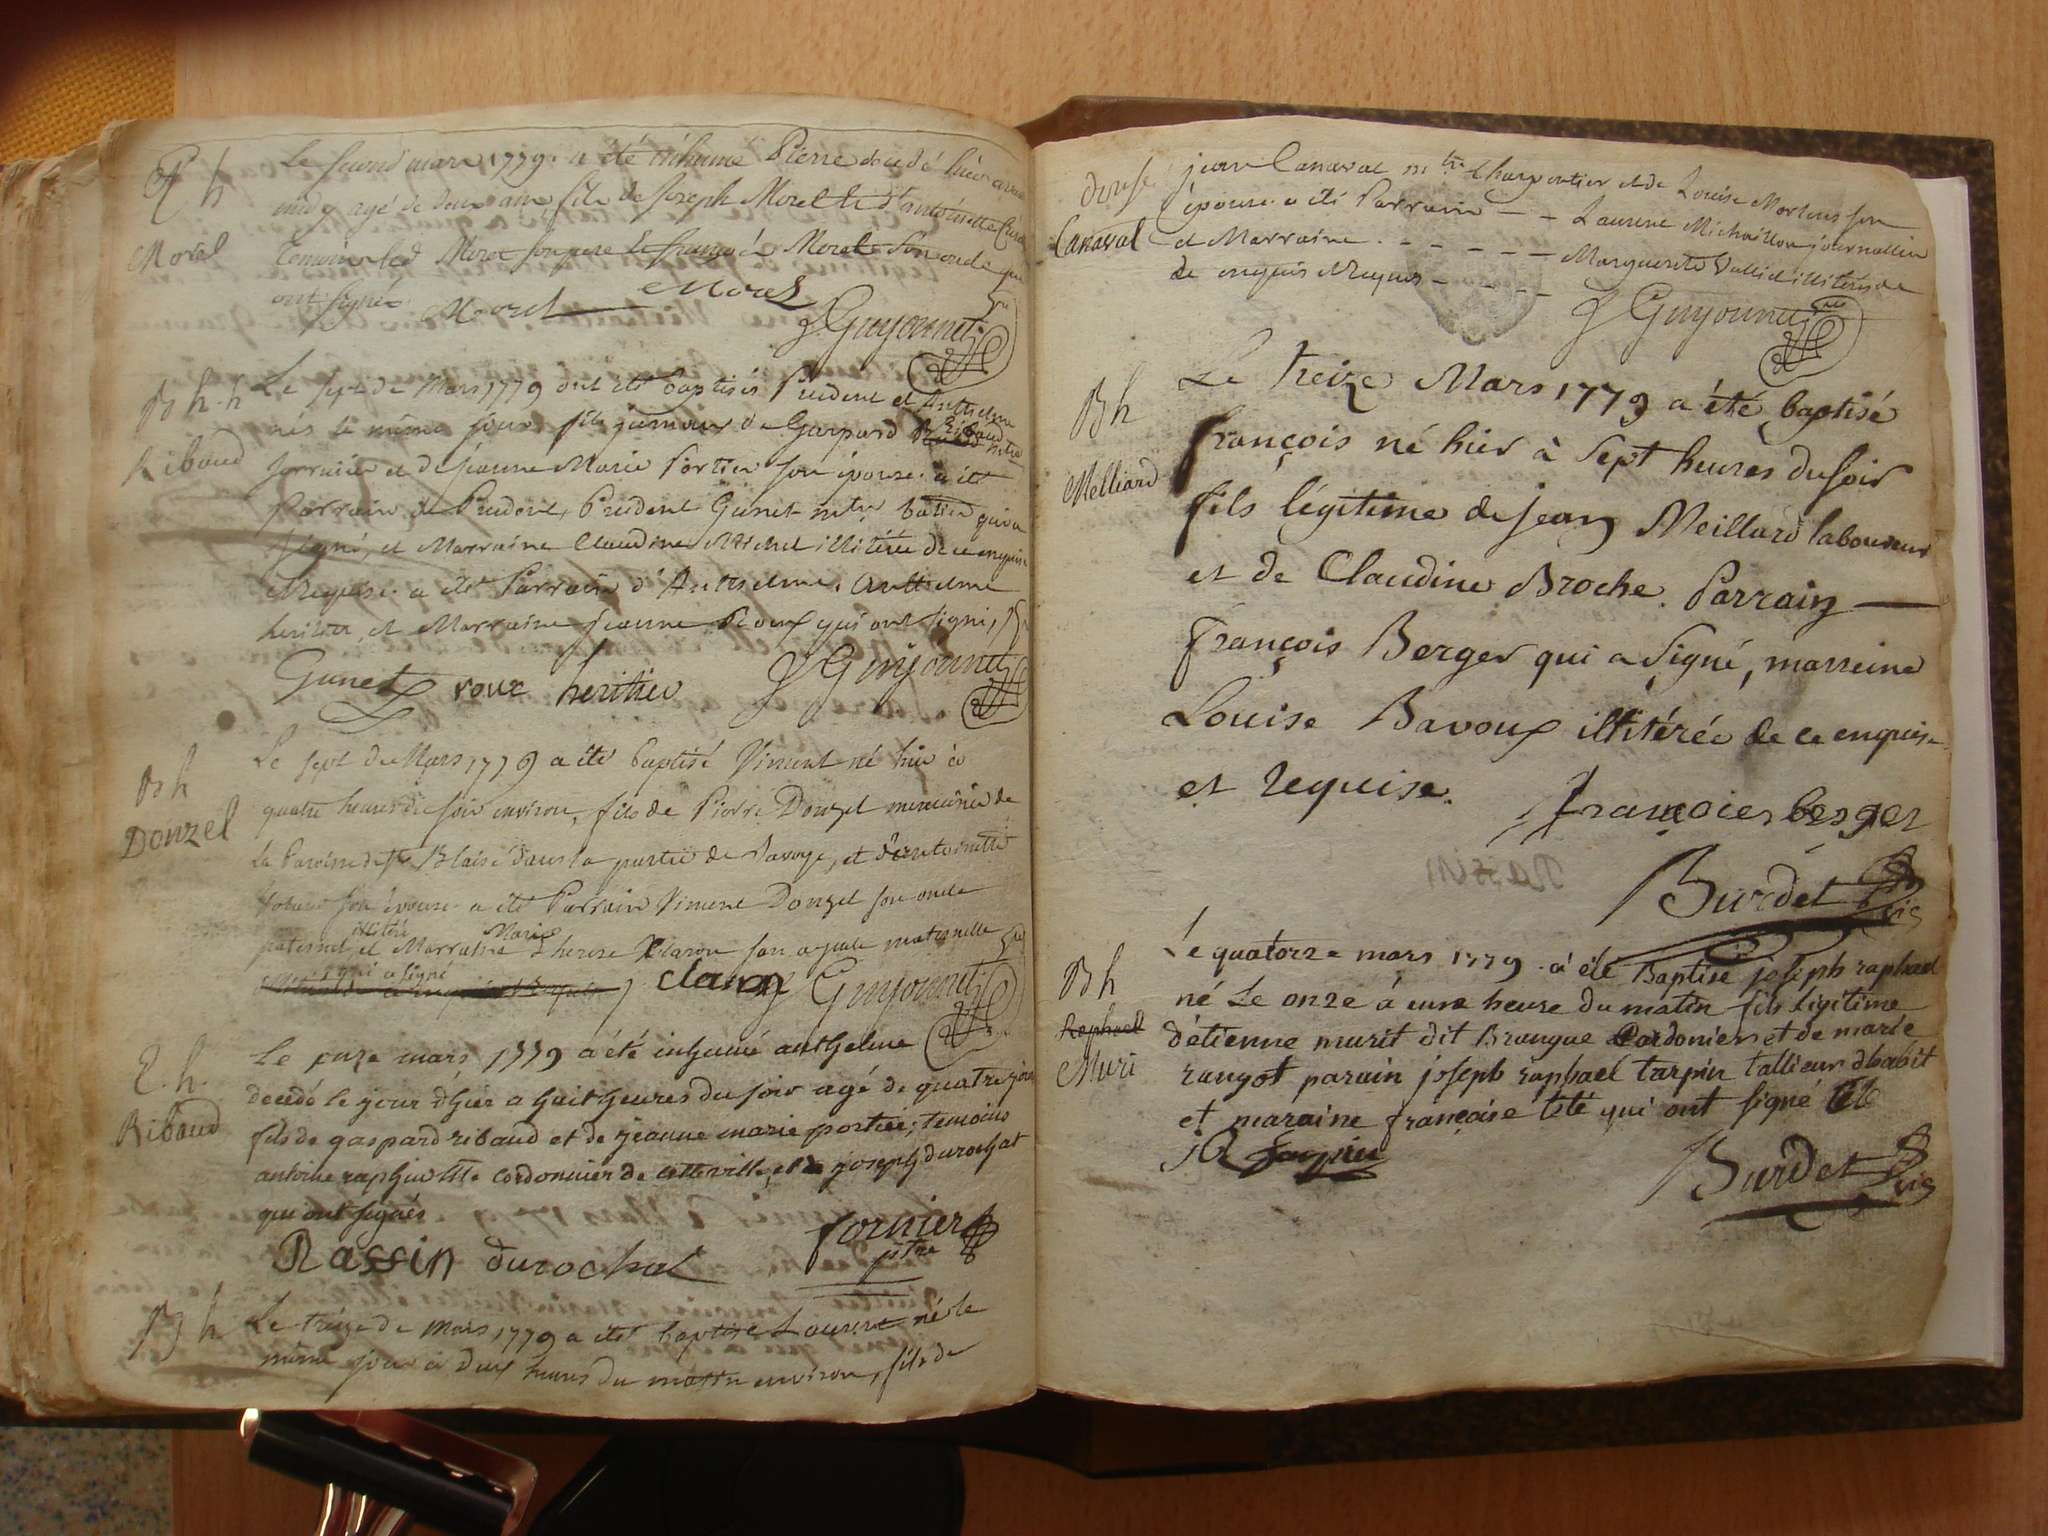 E h
Morel
Le second mars 1779. a été inhumé Pierre décédé hier avant
midy agé de deux ans fils de Joseph Morel et d'antoinette
témoins led Morel son pere et françois Morel son oncle qui
ont signé.
Morel Morel
Guyonnet
B h. h
Ribaud
Le sept de Mars 1779 ont été baptisés Prudent et Anthelme
nés le même jour, fils jumeaux de Gaspard Ribaud mtre
serrurier et de jeanne Marie Portier son épouse. a été
Parrain de Prudent, Prudent Gunet mtre batier qui a
signé, et Marraine Claudine Michel illitérée de ce enquise
Requise. a été Parrain d'Anthelme. Anthelme
heritier, et Marraine jeanne Roux qui ont signé,
Gunet roux heritier Guyonnet
B h
Donzel
Le sept de Mars 1779 a été baptisé Vincent né hier à
quatre heures du soir environ, fils de Pierre Donzel menuisier de
la Paroisse de St Blaise dans la partie de Savoye, et d'antoinette
son épouse. a été Parrain Vincent Donzel son oncle
illitéré Marie
paternel et Marraine Therese Claron son ayeule maternelle
qui a signé
claron Guyonnet
E. h.
Ribaud
Le onze mars 1779 a été inhumé anthelme
décédé le jour d'hier a huit heures du soir agé de quatre jours
fils de gaspard ribaud et de jeanne marie portier; temoins
antoine cordonnier de cette ville, et joseph durochat
qui ont signés
Rassin durochat fornier
ptre
B h
Le treize de Mars 1779 a été baptisé Laurent né le
même jour à deux heures du matin environ, fils de
Canaval
jean Canaval mtre Charpentier et de Louise Mortens son
épouse. a été Parrain - - Laurent Michaillon journallier
et Marraine. - - - - - Marguerite illitérés de
ce enquis Requis - - - -
Guyonnet
B h
Melliard
Le treize Mars 1779 a été baptisé
françois né hier à sept heures du soir
fils légitime de jean Meillard laboureur
et de Claudine Broche. Parrain —
françois Berger qui a signé, marreine
Louise Bavoux illitérée de ce enquise
et requise.
francoies berger
Burdet vic
B h
Raphael
Muri
Le quatorze mars 1779. a été Baptisé joseph raphael
né Le onze à une heure du matin fils légitime
d'etienne murit dit Brangue Cordonier et de marie
rangot parain joseph raphael tarpin tallieur d'habit
et maraine françoise teté qui ont signé
JR tarpin
Burdet vic